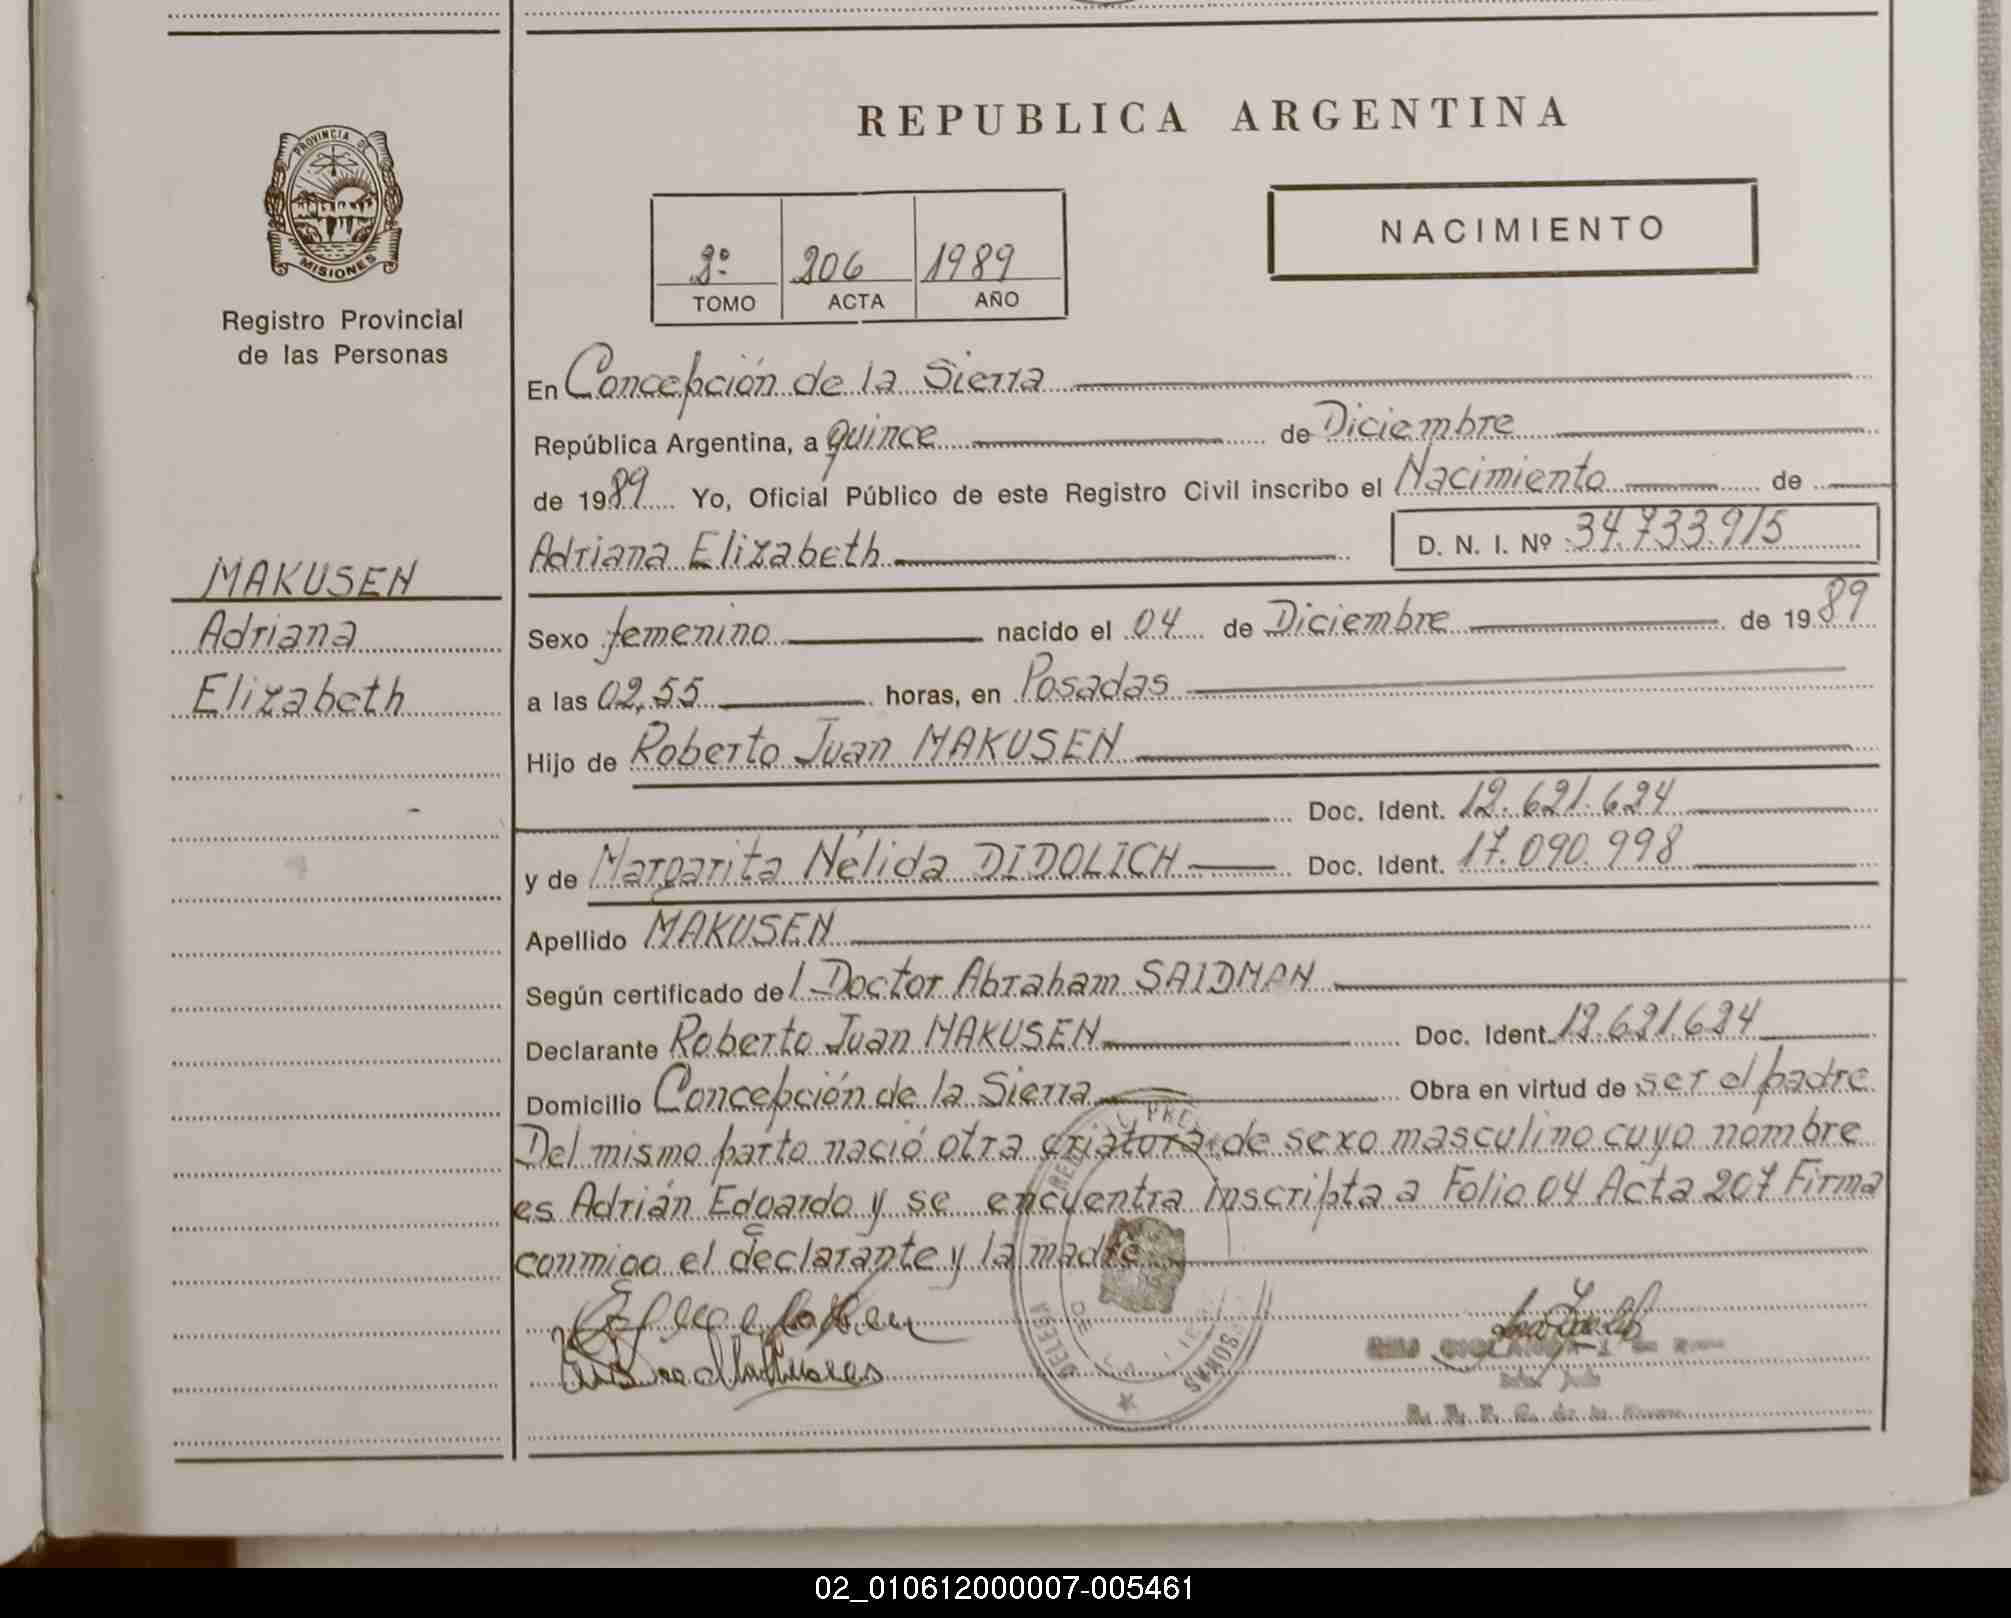 PROVINCIA DE
MISIONES
Registro Provincial
de las Personas
MAKUSEN
Adriana
Elizabeth
REPUBLICA ARGENTINA
2º 206 1989
TOMO ACTA AÑO
NACIMIENTO
En Concepción de la Sierra
República Argentina, a quince de Diciembre
de 1989 Yo, Oficial Público de este Registro Civil inscribo el Nacimiento de
Adriana Elizabeth D. N. I. Nº 34.733.915
Sexo femenino nacido el 04 de Diciembre de 1989
a las 02,55 horas, en Posadas
Hijo de Roberto Juan MAKUSEN
Doc. Ident. 12.621.624
y de Margarita Nélida DIDOLICH Doc. Ident. 17.090.998
Apellido MAKUSEN
Según certificado del Doctor Abraham SAIDMAN
Declarante Roberto Juan MAKUSEN Doc. Ident. 12.621.624
Domicilio Concepción de la Sierra Obra en virtud de ser el padre
Del mismo parto nació otra criatura de sexo masculino cuyo nombre
es Adrián Eduardo y se encuentra inscripta a Folio 04 Acta 207 Firma
conmigo el declarante y la madre
02_010612000007-005461